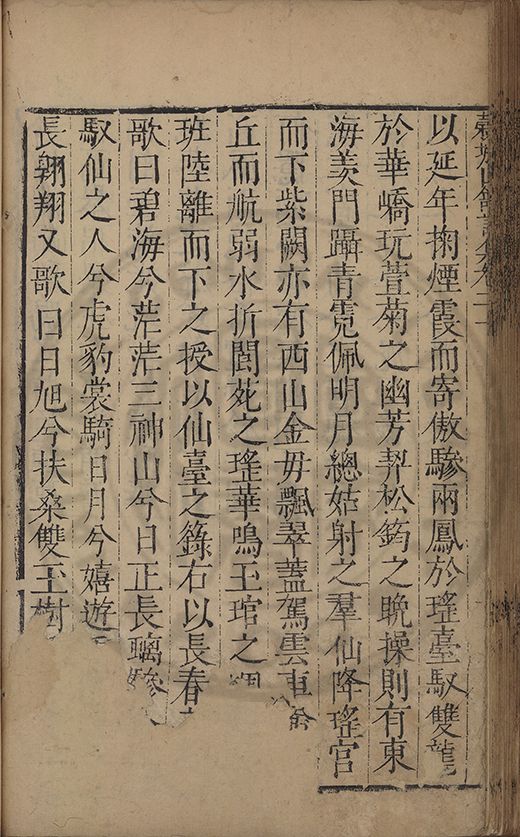 以延年掬煙霞而寄傲驂兩鳳於瑤臺馭雙龍
於華嶠玩萱菊之幽芳挈松筠之晚操則有東
海羨門躡青霓佩明月總姑射之羣仙降瑤宮
而下紫闕亦有西山金毋飄翠蓋駕雲車
丘而航弱水折閬苑之瑤華鳴玉琯之
班陸離而下之授以仙臺之籙右以長春
歌曰碧海兮茫茫三神山兮日正長璃驂
馭仙之人兮虎豹裳騎日月兮嬉遊
長翱翔又歌曰日旭兮扶桑雙玉樹